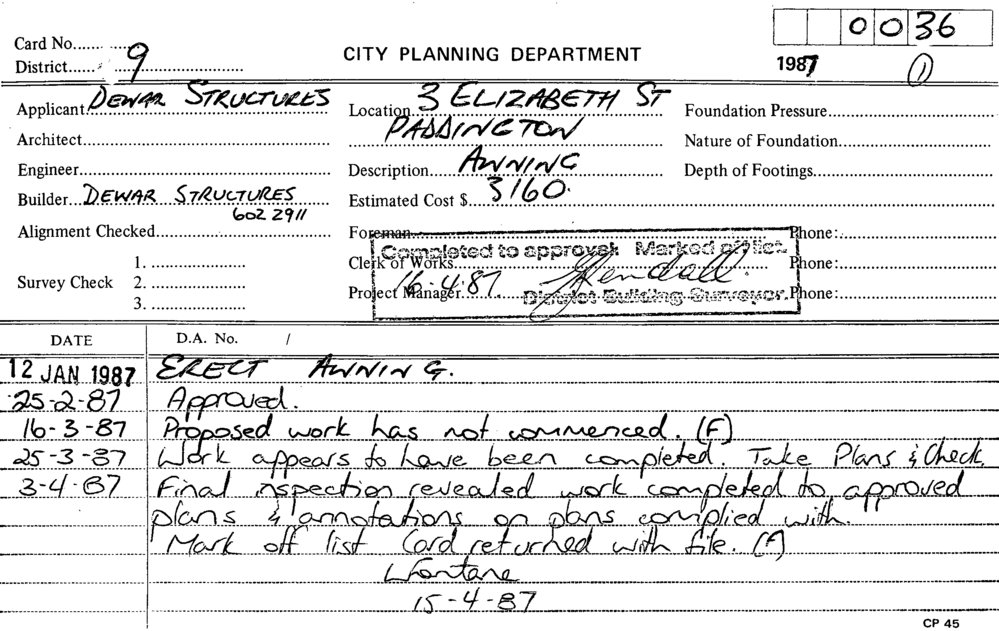 0 0 36
Card No.
District 9
CITY PLANNING DEPARTMENT
1987
(1)
Applicant DEWAR STRUCTURES
Location 3 ELIZABETH ST
Foundation Pressure
Architect
PADDINGTON
Nature of Foundation
Engineer
Description AWNING
Depth of Footings
Builder DEWAR STRUCTURES
Estimated Cost $ 3160.
602 2911
Alignment Checked
Foreman
Phone:
Completed to approval. Marked off list.
Clerk of Works
Phone:
Survey Check
1.
2.
3.
Project Manager
16.4.87
Kendall.
District Building Surveyor.
Phone:
DATE
D.A. No. /
12 JAN 1987 ERECT AWNING.
25-2-87 Approved.
16-3-87 Proposed work has not commenced. (F)
25-3-87 Work appears to have been completed. Take Plans & Check.
3-4-87 Final inspection revealed work completed to approved
plans & annotations on plans complied with.
Mark off list Card returned with file. (F)
LFontane
15-4-87
CP 45